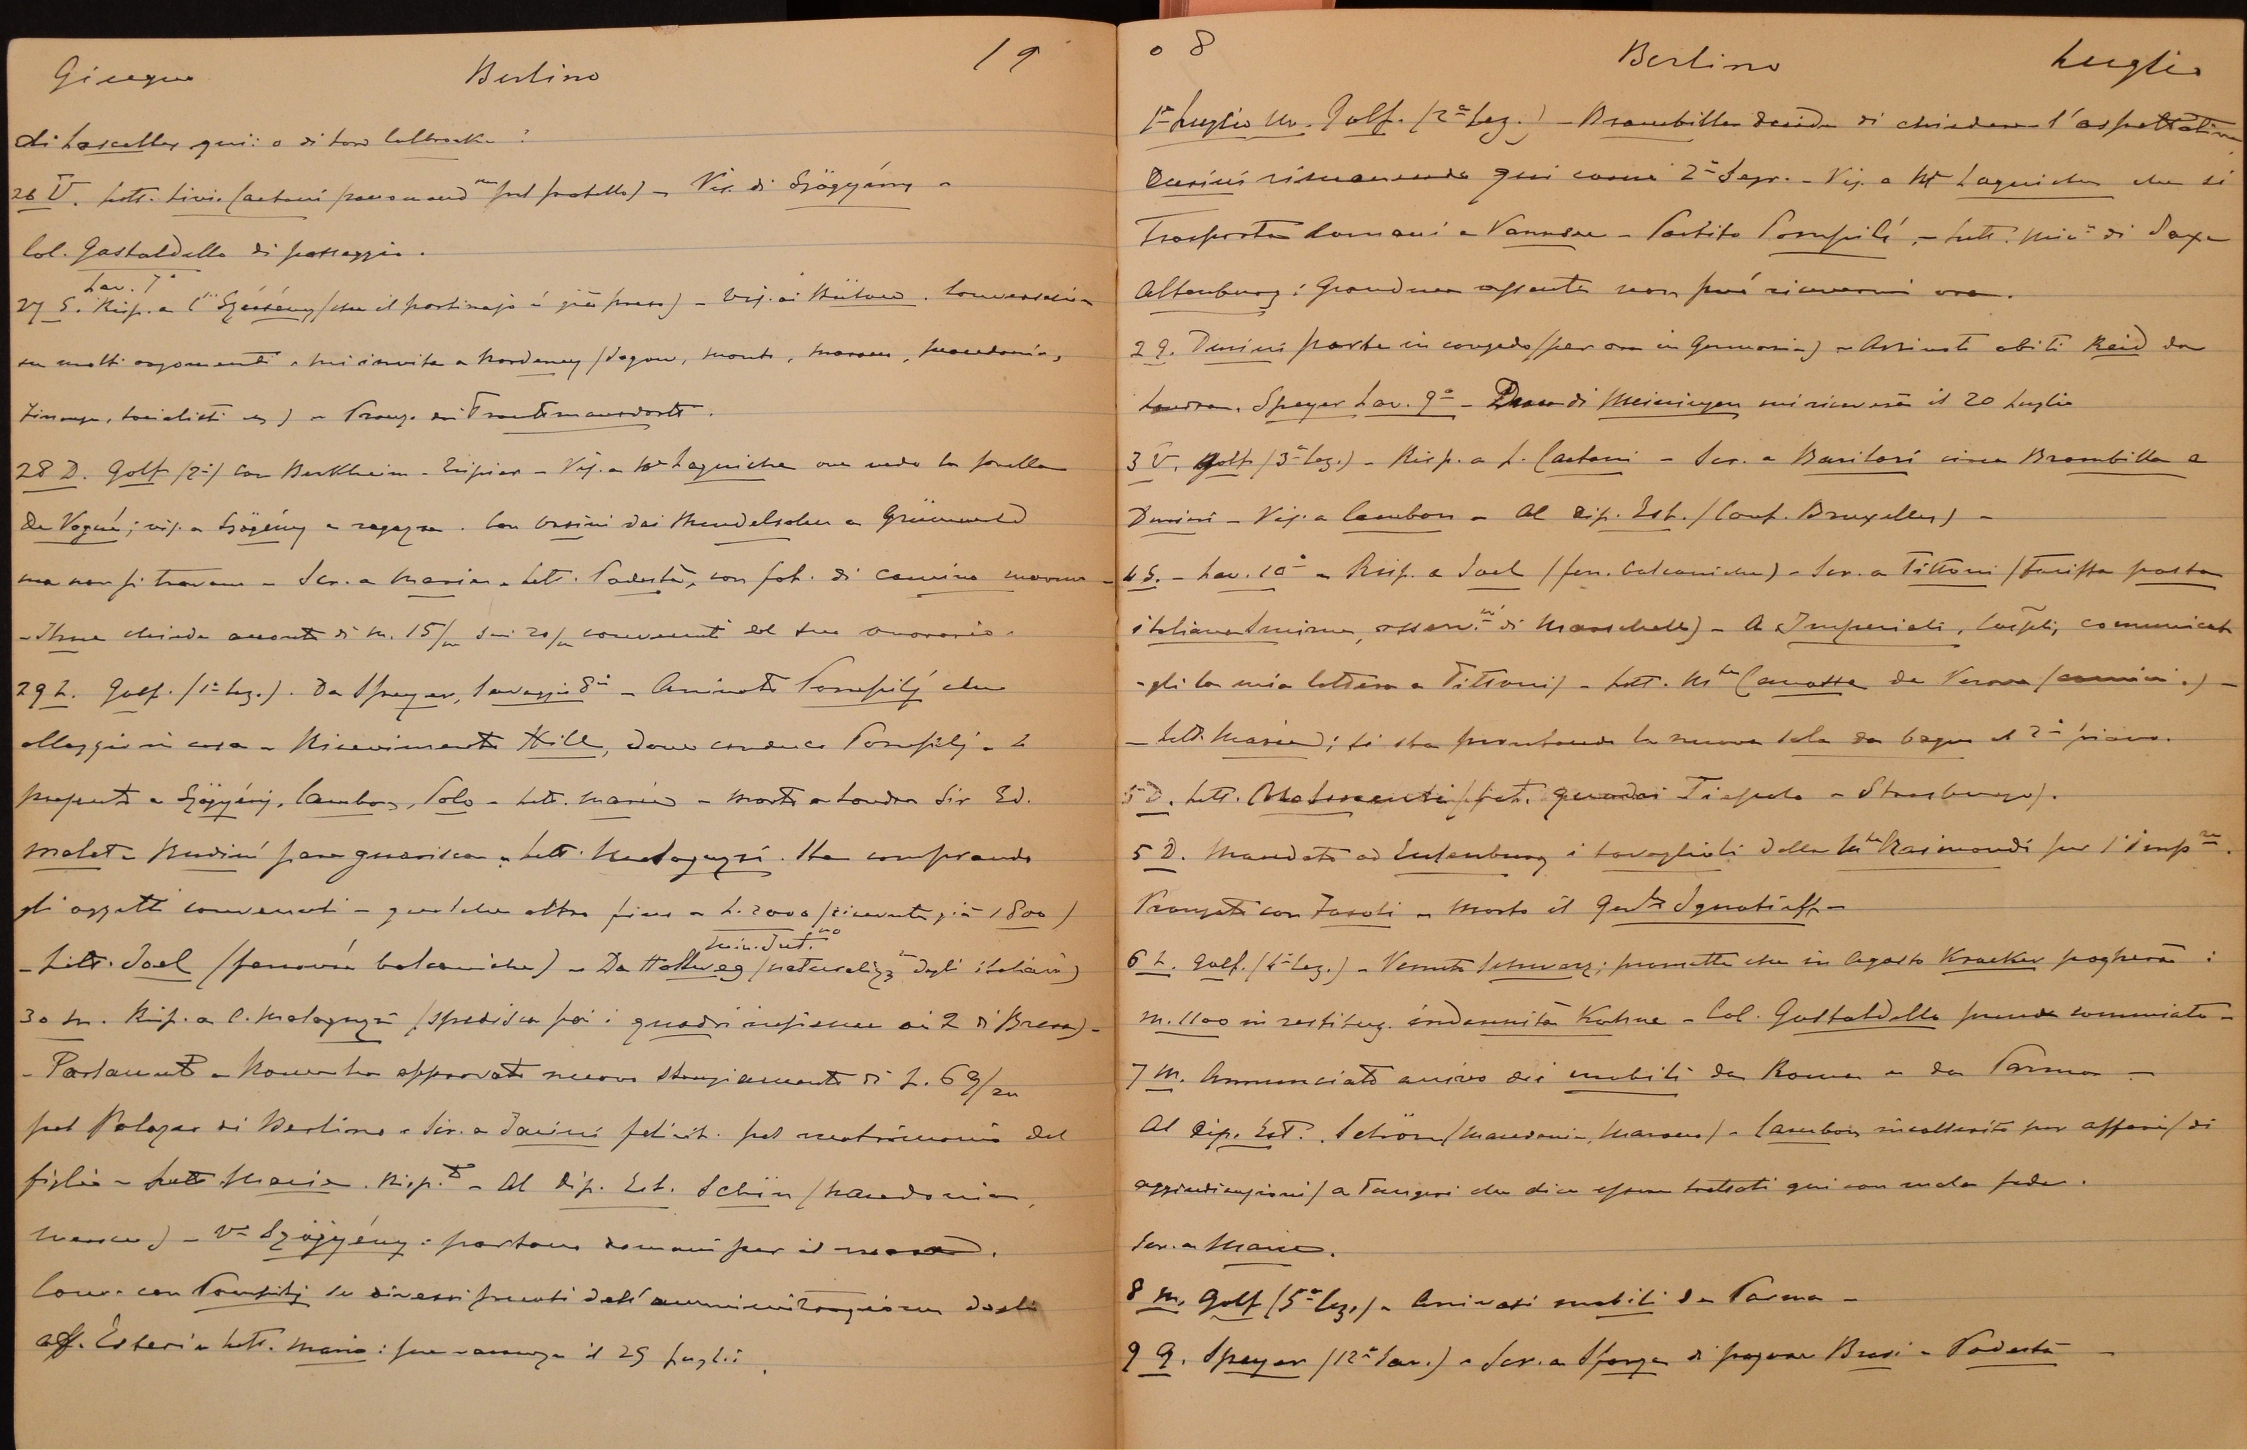 Giugno Berlino 19
di Lascelles qui: o di Lord
26 V. Lett. Livia Caetani pel fratello) - Vis. di Szögyény -
Col. Gastaldello di passaggio.
Lav. 7ª
27 S. Risp. a Cte Szécsény (che il portinajo è già preso) - Vis. ai Bülow. Conversazione
su molti argomenti - mi invita a Norderney (Jagow, Monts, Marocco, Macedonia,
socialisti ) - Pranzo dai Trauttmansdorff.
28 D. Golf (2ª) con Berkheim - Vis. a Mme Laguiche ove vedo la sorella
De Vogüé; vis. a Szögyény e ragazza. Con Orsini dai Mendelsohn a Grünewald
ma non si trovano - Scr. a Maria - Lett. Podestà, con fot. di camino marmo -
- Ihne chiede acconto di m. 15/m sui 20/m convenuti del suo onorario.
29 L. Golf. (1ª lez.). Da Speyer, lavaggio 8ª - Arrivato Pompilj che
alloggio in casa - Ricevimento Hill, dove conduco Pompilj e lo
presento a Szögyény, Cambon, Polo - Lett. Maria - Morto a Londra Sir Ed.
Malet - Rudinì pare guarisca - Lett. Malaguzzi. Sta comprando
gli oggetti convenuti - qualche altro fino a L. 2000 (ricevute già 1800)
Min. Int.no
- Lett. Joel (ferrovie balcaniche) - Da Hollweg (naturalizz.ne degli italiani)
30 M. Risp. a C. Malaguzzi (spedisca poi i quadri insieme ai 2 di Brera) -
- Parlamento a Roma ha approvato nuovo stanziamento di L. 69/m
pel Palazzo di Berlino - Scr. a Jacini felicit. pel matrimonio del
figlio - Lett. Maria. Risp.to - Al Dip. Est. Schön (Macedonia,
Marocco) - Va Szögyény: partono domani per il mare.
Conv. con Pompilj su diversi punti dell'amministrazione degli
aff. Esteri - Lett. Maria: 25 luglio.
08 Berlino Luglio
1º Luglio M. Golf. (2ª Lez.) - Brambilla decide di chiedere l'aspettativa
Durini rimanendo qui come 2º Segr. - Vis. a Mme Laguiche che si
trasporta domani a Vannsee - Partito Pompilj - Lett. di Saxe
Altenburg: Granduca assente non può ricevermi ora.
2 G. Durini parte in congedo (per ora in Germania) - Arrivati abiti Reid da
Londra. Speyer Lav. 9ª - Duca di Meiningen mi riceverà il 20 Luglio
3 V. Golf (3ª lez.) - Risp. a L. Caetani - Scr. a Barilari circa Brambilla e
Durini - Vis. a Cambon - Al Dip. Est. (Conf. Bruxelles) -
4 S. - Lav. 10ª - Risp. a Joel (ferr. balcaniche) - Scr. a Tittoni (tariffa posta
italiana Smirne, osserv.ni di Marschall) - A Imperiali, Cospli, comunicato
-gli la mia lettera a Tittoni) - Lett. Msa Canossa da Verona (camini.) -
- Lett. Maria; si sta preparando la nuova sala da bagno al 2º piano.
5 D. Lett. Molmenti (fot. quadri Tiepolo - Strasburgo).
5 D. Mandato ad Eulenburg i tovaglioli della Msa Raimondi per l'Imp.ce.
Pranzato con Fasoli - Morto il Gen.le Ignatieff -
6 L. Golf. (4ª lez.) - Venuto Schwarz; promette che in Agosto Kracker pagherà i
m. 1100 in restituz. indennità Kuhne - Col. Gastaldello prende commiato -
7 M. Annunciato arrivo dei mobili da Roma e da Parma -
Al Dip. Est. Schön (Macedonia, Marocco) - Cambon inalberito per affari (di
aggiudicazioni) a Tangeri che dice essere trattati qui con mala fede.
Scr. a Maria.
8 M. Golf (5ª lez.) - Arrivati mobili da Parma -
9 G. Speyer (12ª Lav.) - Scr. a Sforza di pagare Brusi - Podestà -